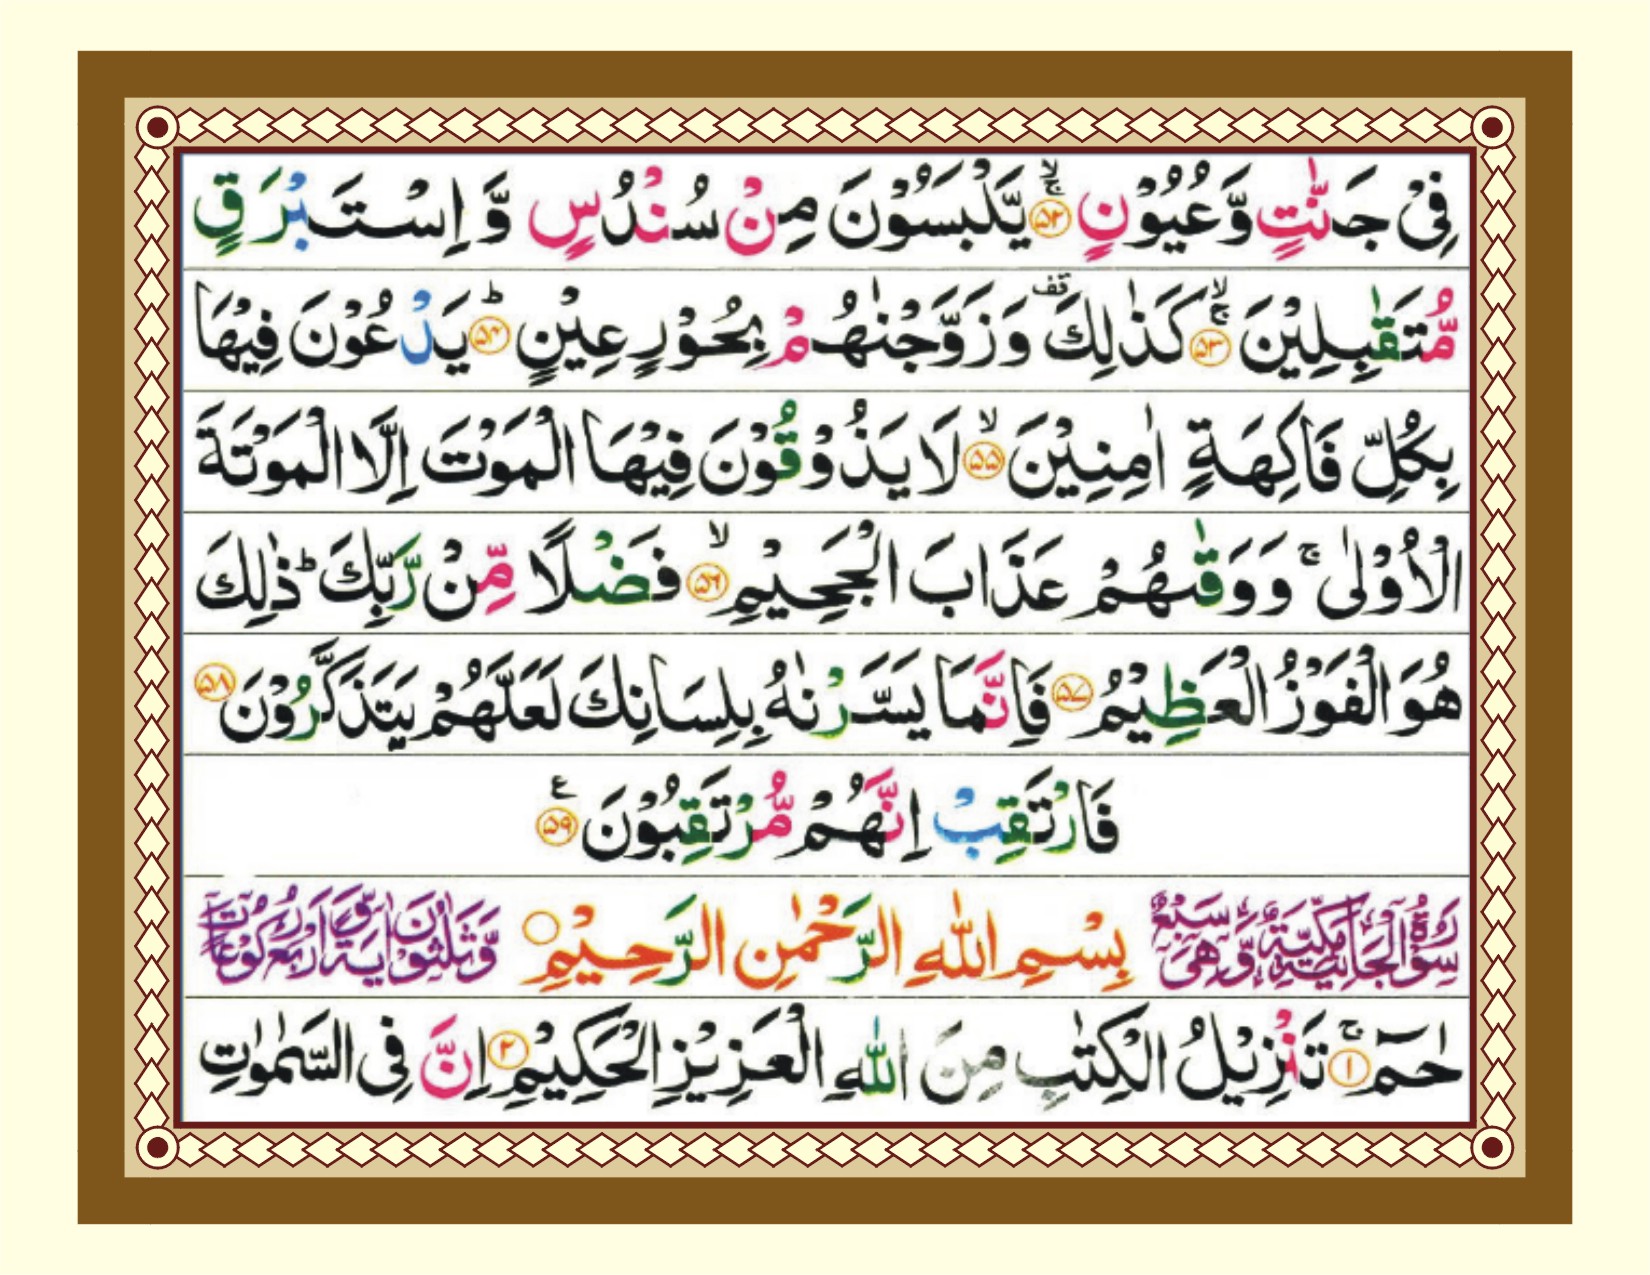 فِیْ جَنّٰتٍ وَّعُیُوْنٍ ﴿۵۲﴾ۚۙ یَّلْبَسُوْنَ مِنْ سُنْدُسٍ وَّ اِسْتَبْرَقٍ
مُّتَقٰبِلِیْنَ ﴿۵۳﴾ۚۙ کَذٰلِكَ قف وَ زَوَّجْنٰهُمْ بِحُوْرٍ عِیْنٍ ﴿۵۴﴾ؕ یَدْعُوْنَ فِیْهَا
بِکُلِّ فَاکِهَةٍ اٰمِنِیْنَ ﴿۵۵﴾ۙ لَا یَذُوْقُوْنَ فِیْهَا الْمَوْتَ اِلَّا الْمَوْتَةَ
الْاُوْلٰی ۚ وَ وَقٰىهُمْ عَذَابَ الْجَحِیْمِ ﴿۵۶﴾ۙ فَضْلًا مِّنْ رَّبِّكَ ؕ ذٰلِكَ
هُوَ الْفَوْزُ الْعَظِیْمُ ﴿۵۷﴾ فَاِنَّمَا یَسَّرْنٰهُ بِلِسَانِكَ لَعَلَّهُمْ یَتَذَکَّرُوْنَ ﴿۵۸﴾
فَارْتَقِبْ اِنَّهُمْ مُّرْتَقِبُوْنَ ﴿۵۹﴾ ع
سُوْرَةُ الْجَاثِیَةِ مَکِّیَّةٌ وَّهِیَ سَبْعٌ بِسْمِ اللّٰهِ الرَّحْمٰنِ الرَّحِیْمِ وَّثَلٰثُوْنَ اٰیَةً وَّاَرْبَعُ رُکُوْعَاتٍ
حٰمٓ ﴿۱﴾ۚ تَنْزِیْلُ الْکِتٰبِ مِنَ اللّٰهِ الْعَزِیْزِ الْحَکِیْمِ ﴿۲﴾ اِنَّ فِی السَّمٰوٰتِ